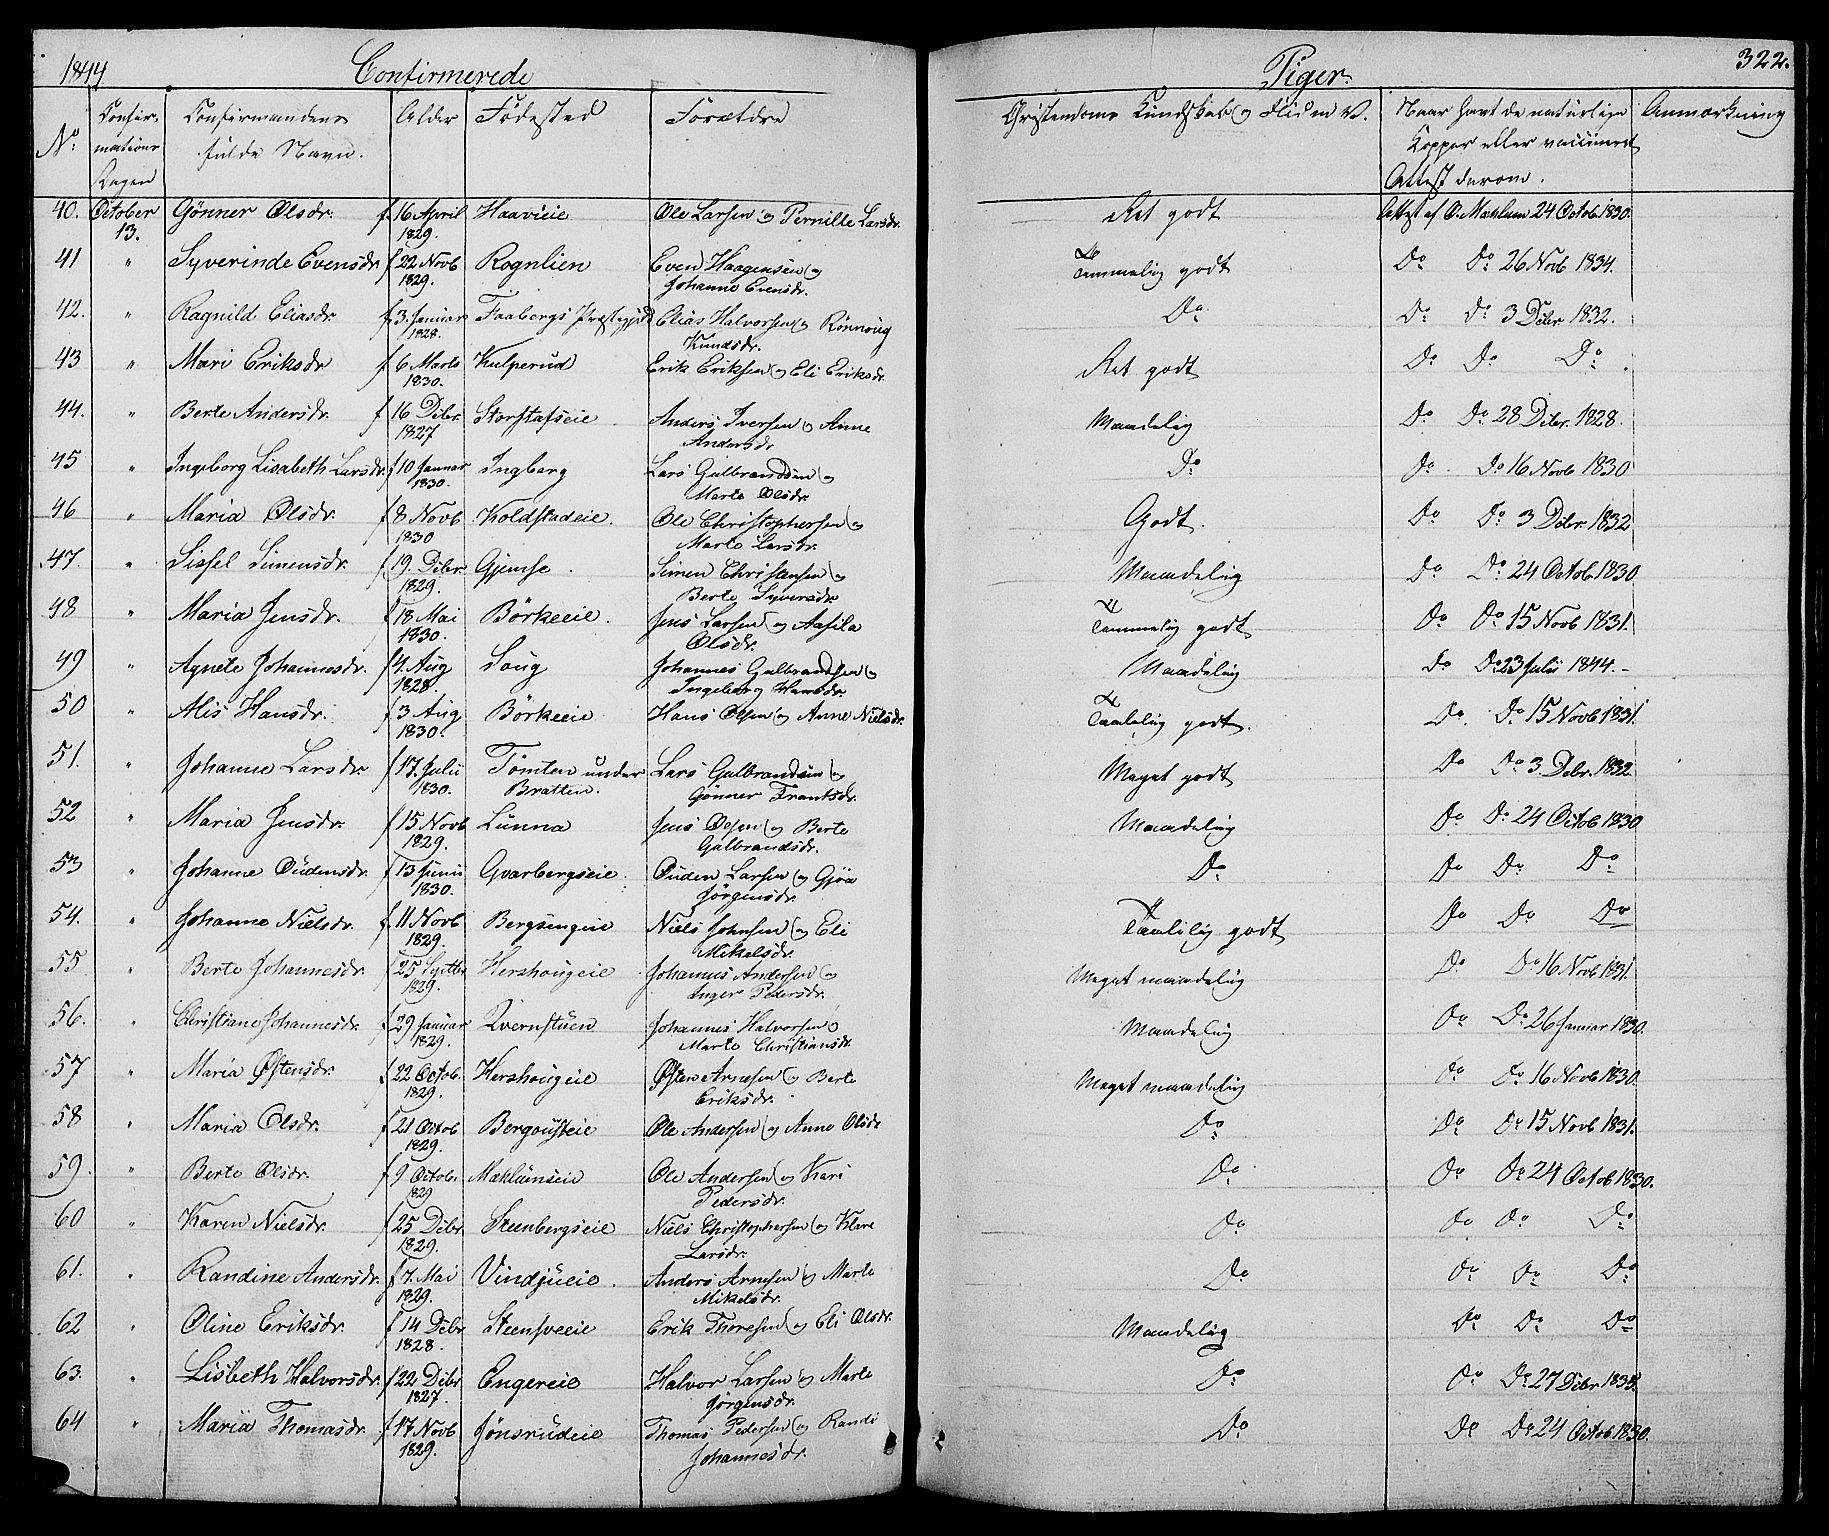 1844 Confirmerede Piger. 322.
No. Confirmations Dagen Confirmandens fulde Navn. Alder Födested Forældre Christendoms Kundskab og Flid m. V. Naar havt de naturlige Kopper eller vaccineret Attest derom. Anmærkning
40. October 13. Gönner Olsdr. f. 16 April 1829. Haavieie Ole Larsen og Pernille Larsdr. Ret godt Attest af O. Mæhlum 24 Octob 1830.
41 " Syverinde Evensdr f 22 Novb 1829. Rognlien Even Haagensen og Johanne Evensdr. Temmelig godt Do Do 26 Novb 1834.
42. " Ragnild Eliasdr. f. 3. Januar 1828. Faabergs Præstegjeld Elias Halvorsen og Rönnoug Knudsdr. Do. Do Do 3 Debr 1832.
43 " Mari Eriksdr f. 6 Marts 1830. Kulperud Erik Eriksen og Eli Eriksdr. Ret godt Do Do Do.
44. " Berte Andersdr. f 16 Debr 1827 Storstafseie Anders Iversen og Anne Andersdr Maadelig Do Do 28 Debr. 1828.
45 " Ingeborg Lisabeth Larsdr. f 10 Januar 1830. Ingberg Lars Gulbrandsen og Marte Olsdr. Do Do. Do 16 Novb 1830
46 " Maria Olsdr. f 8 Novb 1830 Koldstadeie. Ole Christophersen og Marte Larsdr. Godt. Do Do 3 Debr 1832
47. " Sissel Simensdr. f 19. Debr 1829. Gjemse. Simen Christansen og Berte Syversdr Maadelig Do Do 24 Octob 1830
48 " Maria Jensdr. f 18 Mai 1830. Börkeeie. Jens Larsen og Aasila Olsdr. Temmelig godt Do Do 15 Novb 1831.
49 " Agnete Johannesdr. f 4. Aug 1828. Soug Johannes Gulbrandsen og Ingeborg Hansdr. Maadelig Do Do 23 Julii 1844.-
50 " Alis Hansdr. f 3 Aug 1830. Börkeeie Hans Olsen og Anne Nielsdr. Taalelig godt. Do. Do 15 Novb 1831.
51. " Johanne Larsdr. f 17. Julii 1830. Tomten under Bratten. Lars Gulbrandsen og Gönner Frantsdr. Meget godt Do Do 3. Debr. 1832
52 " Maria Jensdr. f 15 Novb 1829. Lunna Jens Olsen og Berte Gulbrandsdr. Maadelig Do Do 24 Octob 1830
53 " Johanne Oudensdr. f 13 Junii 1830. Gvarbergseie Ouden Larsen og Gjöa Jörgensdr. Do Do Do Do
54. " Johanne Nielsdr. f. 11 Novb 1829. Bergsengeie Niels Johnsen og Eli Mikelsdr. Taalelig godt Do Do Do
55. " Berte Johannesdr. f 25 Septbr 1829. Hershougeie Johannes Andersen og Inger Pedersdr. Meget maadelig Do Do 16 Novb 1831.
56. " Christiane Johannesdr. f 29 Januar 1829. Qvernstuen Johannes Halvorsen og Marte Christiansdr. Maadelig Do Do 26 Januar 1830.
57 " Maria Östensdr. f 22 Octob. 1829. Hershougeie Östen Arnesen og Berte Eriksdr. Meget maadelig Do Do 16 Novb 1830.
58 " Maria Olsdr. f 21 Octob 1829. Bergousteie Ole Andersen og Anne Olsdr Do Do Do 15 Novb 1831.
59. " Berte Olsdr. f 9 Octob. 1829 Mæhlumseie Ole Andersen og Kari Pedersdr. Do Do Do 24 Octob 1830.
60 " Karen Nielsdr. f 25 Debr 1829. Steenbergseie Niels Christophersen og Klare Larsdr. Do Do Do Do
61. " Randine Andersdr. f 7. Mai 1829. Vindjueie. Anders Arnesen og Marte Mikelsdr. Do Do Do Do
62 " Oline Eriksdr. f 14 Debr 1828. Steensveeie Erik Thoresen og Eli Olsdr. Maadelig Do Do Do
63. " Lisbeth Halvorsdr. f 22 Debr 1827. Engereie Halvor Larsen og Marte Jörgensdr. Do Do Do 27 Debr 1835.
64 " Maria Thomasdr. f 17 Novb 1829. Jönsrudeie Thomas Pedersen og Randi Johannesdr. Do Do Do 24 Octob 1830.